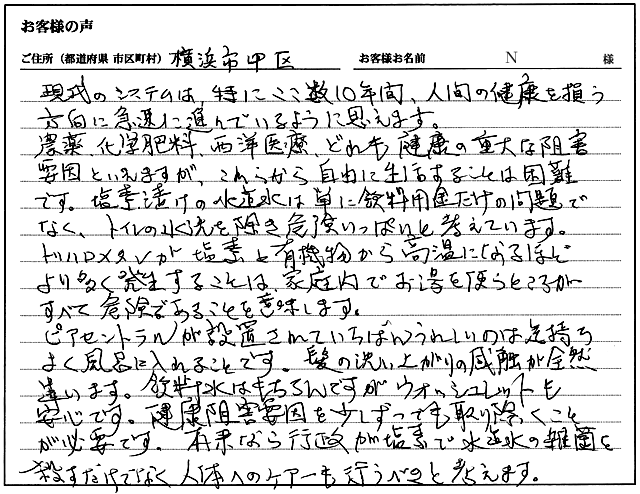 お客様の声
ご住所（都道府県 市区町村） 横浜市中区 お客様お名前 N 様
現代のシステムは、特にここ数10年間、人間の健康を損う
方向に急速に進んでいるように思えます。
農薬、化学肥料、西洋医療、どれも健康の重大な阻害
要因といえますが、これらから自由に生活することは困難
です。塩素漬けの水道水は単に飲料用途だけの問題で
なく、トイレの水洗を除き危険いっぱいと考えています。
トリハロメタンが塩素と有機物から高温になるほど
より多く発生することは、家庭内でお湯を使うところが
すべて危険であることを意味します。
ピアセントラルが設置されていちばんうれしいのは気持ち
よく風呂に入れることです。髪の洗い上がりの感触が全然
違います。飲料水はもちろんですがウォッシュレットも
安心です。健康阻害要因を少しずつでも取り除くこと
が必要です。本来なら行政が塩素で水道水の雑菌を
殺すだけでなく人体へのケアーも行うべきと考えます。